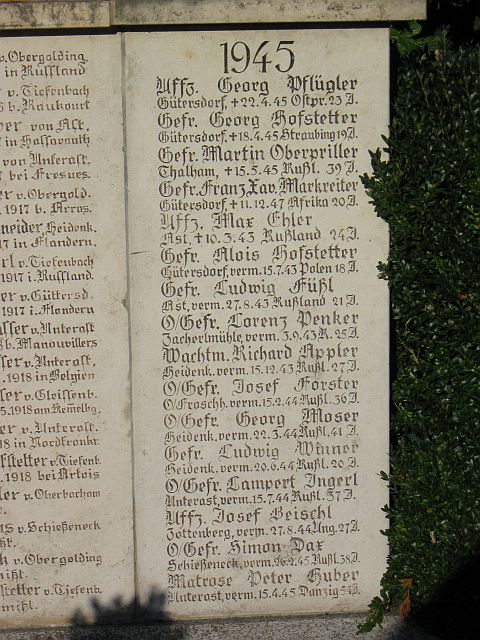 v. Obergolding
in Rußland
v. Tiefenbach
b. Raukourt
er von Ast,
von Unterast,
bei Fresnes.
er v. Obergold.
1917 b. Arras.
neider, Heidenk.
17 in Flandern.
rl v. Tiefenbach
1917 i. Russland.
er v. Güttersd.
1917 i. Flandern
asser v. Unterast
b. Manouvillers
sser v. Unterast,
. 1918 in Belgien
ser v. Gleissenb.
5.1918 am Kemelbg.
er v. Unterast.
18 in Nordfrankr.
fstetter v. Tiefenb.
1918 bei Artois
ler v. Oberbachow
us v. Schießeneck
k v. Obergolding
mißt.
stetter v. Tiefenb.
mißl.
1945
Uffz. Georg Pflügler
Gütersdorf, +22.4.45 Ostpr. 23 J.
Gefr. Georg Hofstetter
Gütersdorf, +18.4.45 Straubing 19 J.
Gefr. Martin Oberpriller
Thalham, +15.5.45 Rußl. 39 J.
Gefr. Franz Xav. Markreiter
Gütersdorf, +11.12.47 Afrika 20 J.
Uffz. Max Ehler
Ast, +10.3.43 Rußland 24 J.
Gefr. Alois Hofstetter
Gütersdorf, verm. 15.7.43 Polen 18 J.
Gefr. Ludwig Füßl
Ast, verm. 27.8.43 Rußland 21 J.
O/Gefr. Lorenz Penker
Zacherlmühle, verm. 3.9.43 R. 25 J.
Wachtm. Richard Appler
Heidenk. verm. 15.12.43 Rußl. 27 J.
O/Gefr. Josef Forster
O/Froschh. verm. 15.2.44 Rußl. 36 J.
O/Gefr. Georg Moser
Heidenk, verm. 22.3.44 Rußl. 41 J.
Gefr. Ludwig Winner
Heidenk. verm. 20.6.44 Rußl. 20 J.
O/Gefr. Lampert Ingerl
Unterast, verm. 15.7.44 Rußl. 37 J.
Uffz. Josef Beischl
Zottenberg, verm. 27.8.44 Ung. 27 J.
O/Gefr. Simon Dax
Schießeneck, verm. 26.2.45 Rußl. 38 J.
Matrose Peter Huber
Unterast, verm. 15.4.45 Danzig 54 J.